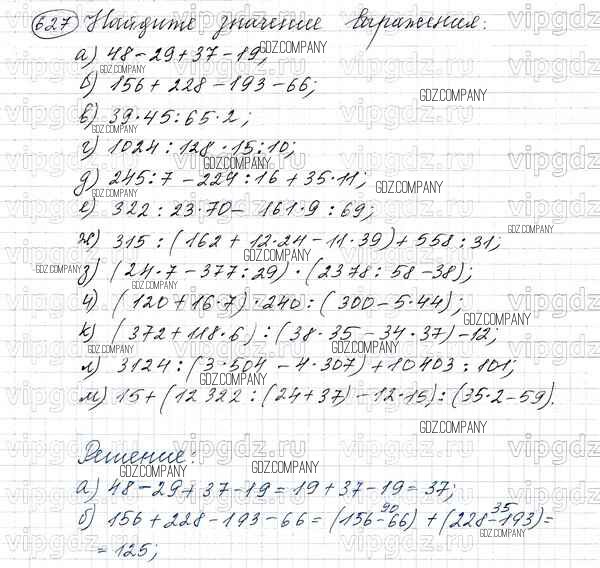 627 Найдите значение выражения:
а) 48-29+37-19;
б) 156+228-193-66;
в) 39·45:65·2;
г) 1024:128·15:10;
д) 245:7-224:16+35·11;
е) 322:23·70-161·9:69;
ж) 315:(162+12·24-11·39)+558:31;
з) (24·7-377:29)·(2378:58-38);
и) (120+16·7)·240:(300-5·44);
к) (372+118·6):(38·35-34·37)-12;
л) 3124:(3·504-4·307)+10403:101;
м) 15+(12322:(24+37)-12·15):(35·2-59).
Решение:
а) 48-29+37-19=19+37-19=37;
б) 156+228-193-66=(156-66)+(228-193)=
90 35
=125;
GDZ.COMPANY
vipgdz.ru